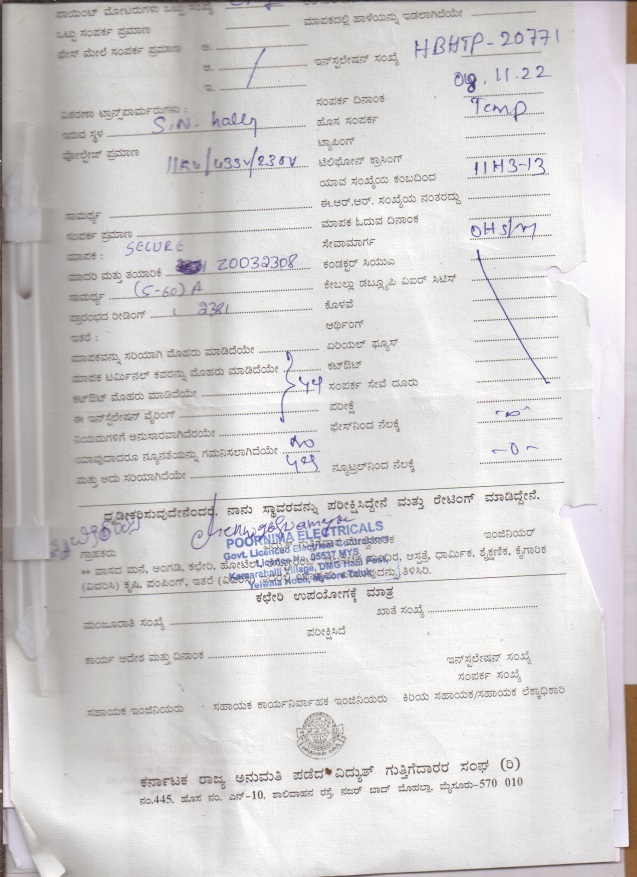 ಪಾಯಿಂಟ್ ಮೋಟರುಗಳು ಒಟ್ಟು ಸಂಖ್ಯೆ
ಒಟ್ಟು ಸಂಪರ್ಕ ಪ್ರಮಾಣ
ಮಾಪಕದಲ್ಲಿ ಹಾಳೆಯನ್ನು ಇಡಲಾಗಿದೆಯೇ
ಫೇಸ್ ಮೇಲೆ ಸಂಪರ್ಕ ಪ್ರಮಾಣ ಅ.
ಆ. ಇನ್‌ಸ್ಟಲೇಷನ್ ಸಂಖ್ಯೆ HBHTP-20771
ಇ.
ಸಂಪರ್ಕ ದಿನಾಂಕ 09.11.22
ವಿತರಣಾ ಟ್ರಾನ್ಸ್‌ಫಾರ್ಮರುಗಳು :
ಇರುವ ಸ್ಥಳ S.N. hally ಹೊಸ ಸಂಪರ್ಕ Temp
ಟ್ಯಾಪಿಂಗ್
ವೋಲ್ಟೇಜ್ ಪ್ರಮಾಣ 11KV/433V/230V ಟೆಲಿಫೋನ್ ಕ್ರಾಸಿಂಗ್
ಯಾವ ಸಂಖ್ಯೆಯ ಕಂಬದಿಂದ 11H3-13
ಈ.ಆರ್.ಆರ್. ಸಂಖ್ಯೆಯ ನಂತರದ್ದು
ಸಾಮರ್ಥ್ಯ ಮಾಪಕ ಓದುವ ದಿನಾಂಕ
ಸಂಪರ್ಕ ಪ್ರಮಾಣ ಸೇವಾಮಾರ್ಗ OHS/M
ಮಾಪಕ : SECURE
ಮಾದರಿ ಮತ್ತು ತಯಾರಿಕೆ 20032308 ಕಂಡಕ್ಟರ್ ಸಿಯುಎ
ಸಾಮರ್ಥ್ಯ (5-60) A ಕೇಬಲ್ಲು ಡಬ್ಲ್ಯೂಪಿ ವಿಐರ್ ಸಿಟಿಸ್
ಪ್ರಾರಂಭದ ರೀಡಿಂಗ್ 2381 ಕೊಳವೆ
ಇತರೆ : ಅರ್ಥಿಂಗ್
ಮಾಪಕವನ್ನು ಸರಿಯಾಗಿ ಮೊಹರು ಮಾಡಿದೆಯೇ ಏರಿಯಲ್ ಫ್ಯೂಸ್
ಮಾಪಕ ಟರ್ಮಿನಲ್ ಕವರನ್ನು ಮೊಹರು ಮಾಡಿದೆಯೇ ಕಟ್‌ಔಟ್
ಕಟ್‌ಔಟ್ ಮೊಹರು ಮಾಡಿದೆಯೇ ಸಂಪರ್ಕ ಸೇವೆ ದೂರು
ಈ ಇನ್‌ಸ್ಟೆಲೇಷನ್ ವೈರಿಂಗ್ ಪರೀಕ್ಷೆ
ನಿಯಮಗಳಿಗೆ ಅನುಸಾರವಾಗಿವೆರೆಯೇ ಫೇಸ್‌ನಿಂದ ನೆಲಕ್ಕೆ
ಯಾವುದಾದರೂ ನ್ಯೂನತೆಯನ್ನು ಗಮನಿಸಲಾಗಿದೆಯೇ No
ಮತ್ತು ಅದು ಸರಿಯಾಗಿದೆಯೇ ನ್ಯೂಟ್ರಲ್‌ನಿಂದ ನೆಲಕ್ಕೆ -0-
ದೃಢೀಕರಿಸುವುದೇನೆಂದರೆ, ನಾನು ಸ್ಥಾವರವನ್ನು ಪರೀಕ್ಷಿಸಿದ್ದೇನೆ ಮತ್ತು ರೇಟಿಂಗ್ ಮಾಡಿದ್ದೇನೆ.
POORNIMA ELECTRICALS
ಗ್ರಾಹಕರು ಇಂಜಿನಿಯರ್
Govt. Licenced Electrical Contractor
Licence No. 05537 MYS
Kamarahalli Village, DMG Halli Post,
Yelwala Hobli, Mysore Taluk.
** ವಾಸದ ಮನೆ, ಅಂಗಡಿ, ಕಛೇರಿ, ಹೋಟೆಲ್, ಆಸ್ಪತ್ರೆ, ಧಾರ್ಮಿಕ, ಶೈಕ್ಷಣಿಕ, ಕೈಗಾರಿಕೆ
(ವಿವರಿಸಿ) ಕೃಷಿ, ಪಂಪಿಂಗ್, ಇತರೆ ತಿಳಿಸಿರಿ.
ಕಛೇರಿ ಉಪಯೋಗಕ್ಕೆ ಮಾತ್ರ
ಮಂಜೂರಾತಿ ಸಂಖ್ಯೆ ಖಾತೆ ಸಂಖ್ಯೆ
ಪರೀಕ್ಷಿಸಿದೆ
ಕಾರ್ಯ ಆದೇಶ ಮತ್ತು ದಿನಾಂಕ
ಇನ್‌ಸ್ಟಲೇಷನ್ ಸಂಖ್ಯೆ
ಸಂಪರ್ಕ ಸಂಖ್ಯೆ
ಸಹಾಯಕ ಇಂಜಿನಿಯರು ಸಹಾಯಕ ಕಾರ್ಯನಿರ್ವಾಹಕ ಇಂಜಿನಿಯರು ಕಿರಿಯ ಸಹಾಯಕ/ಸಹಾಯಕ ಲೆಕ್ಕಾಧಿಕಾರಿ
ಕರ್ನಾಟಕ ರಾಜ್ಯ ಅನುಮತಿ ಪಡೆದ ವಿದ್ಯುತ್ ಗುತ್ತಿಗೆದಾರರ ಸಂಘ (ರಿ)
ನಂ.445, ಹೊಸ ನಂ. ಎನ್-10, ಶಾಲಿವಾಹನ ರಸ್ತೆ, ನಜರ್ ಬಾದ್ ಮೊಹಲ್ಲಾ, ಮೈಸೂರು-570 010